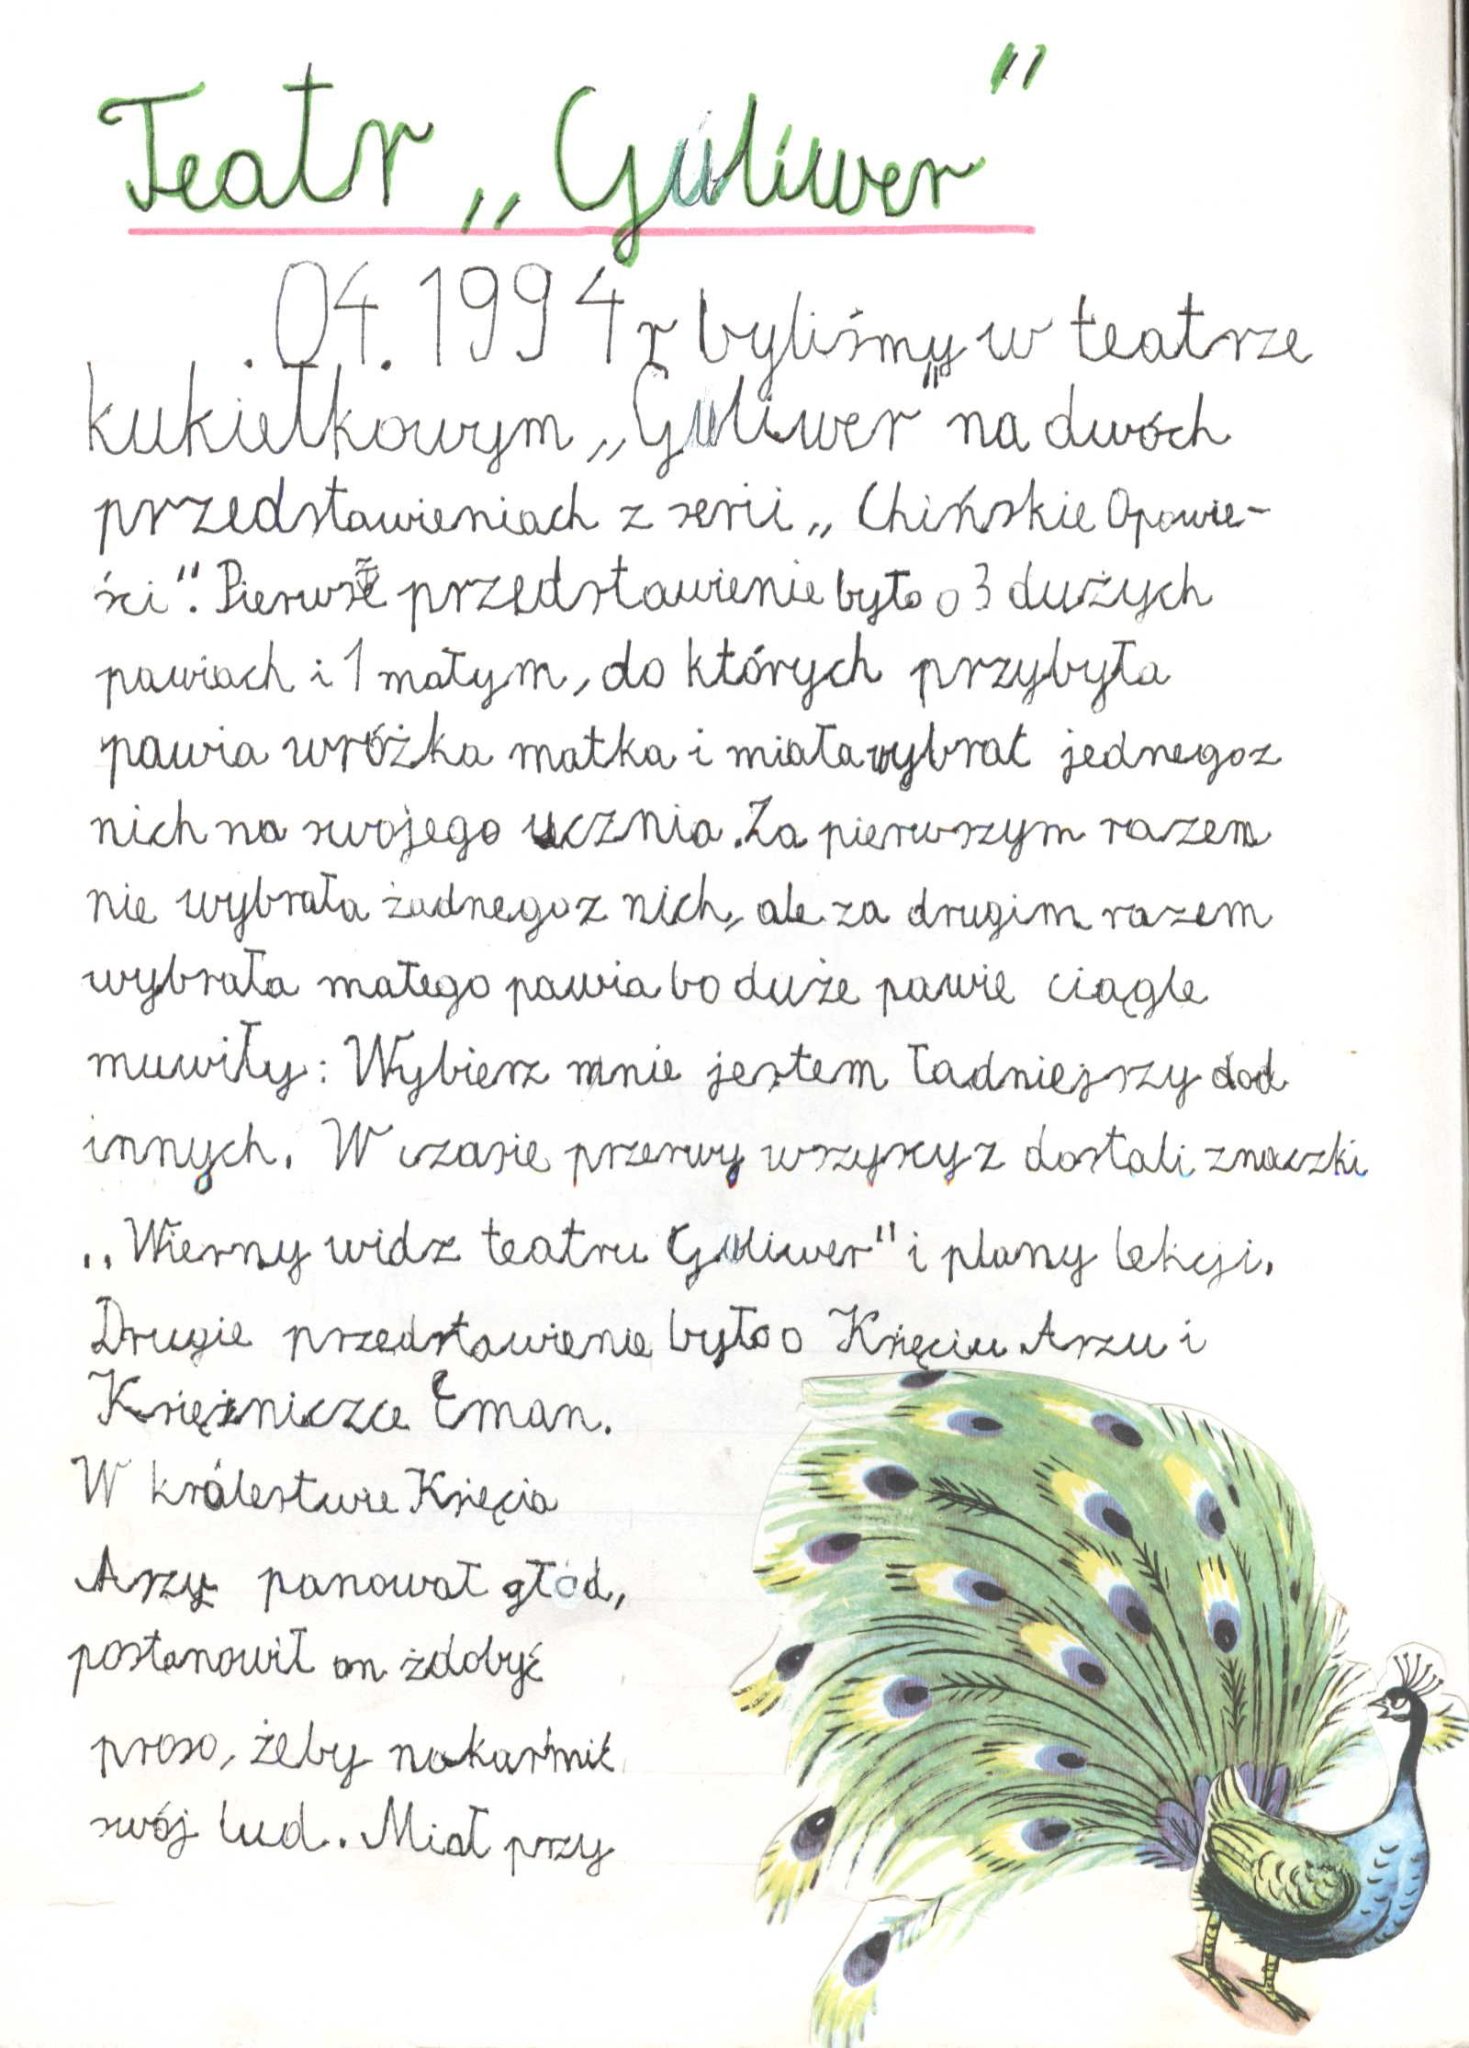 Teatr „Guliwer"
.04.1994r byliśmy w teatrze
kukiełkowym „Guliwer" na dwóch
przedstawieniach z serii „Chińskie Opowie-
ści". Pierwsze przedstawienie było o 3 dużych
pawiach i 1 małym, do których przybyła
pawia wróżka matka i miała wybrać jednego z
nich na swojego ucznia. Za pierwszym razem
nie wybrała żadnego z nich, ale za drugim razem
wybrała małego pawia bo duże pawie ciągle
muwiły: Wybierz mnie jestem ładniejszy od
innych. W czasie przerwy wszyscy z dostali znaczki
„Wierny widz teatru Guliwer" i plany lekcji.
Drugie przedstawienie było o Księciu Arzu i
Księżniczce Eman.
W królestwie Księcia
Arzy panował głód,
postanowił on żdobyć
proso, żeby nakarmić
swój lud. Miał przy